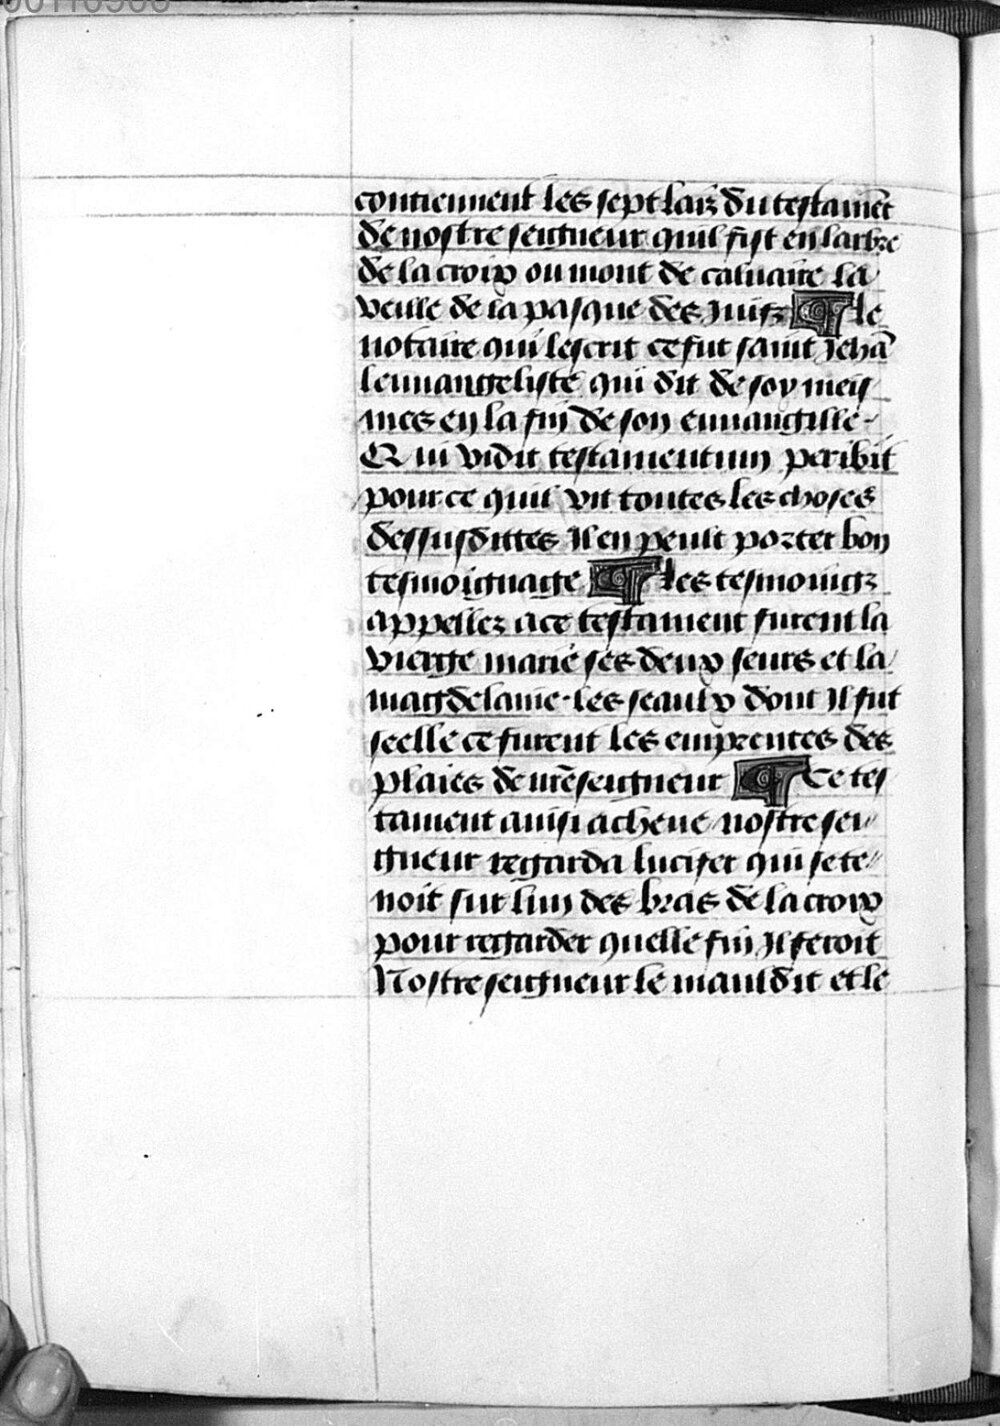 contiennent les sept laiz du testamẽt
de nostre seigneur quil fist en larbre
de la croix ou mont de caluaire la
veille de la pasque des Juifz ¶ le
notaire qui lescrit ce fut saint Jehã
leuuangeliste qui dit de soy meis
mes en la fin de son euuangille.
Qui vidit testamentum peribit
pour ce quil vit toutes les choses
dessusdittes Il en peult porter bon
tesmoignage ¶ les tesmoingz
appellez a ce testament furent la
vierge marie ses deux seurs et la
magdelaine. les seaulx dont Il fut
seelle ce furent les emprentes des
plaies de nr̃e seigneur ¶ Ce tes
tament ainsi acheue nostre sei
gneur regarda lucifer qui se te
noit sur lun des bras de la croix
pour regarder quelle fin Il feroit
Nostre seigneur le mauldit et le